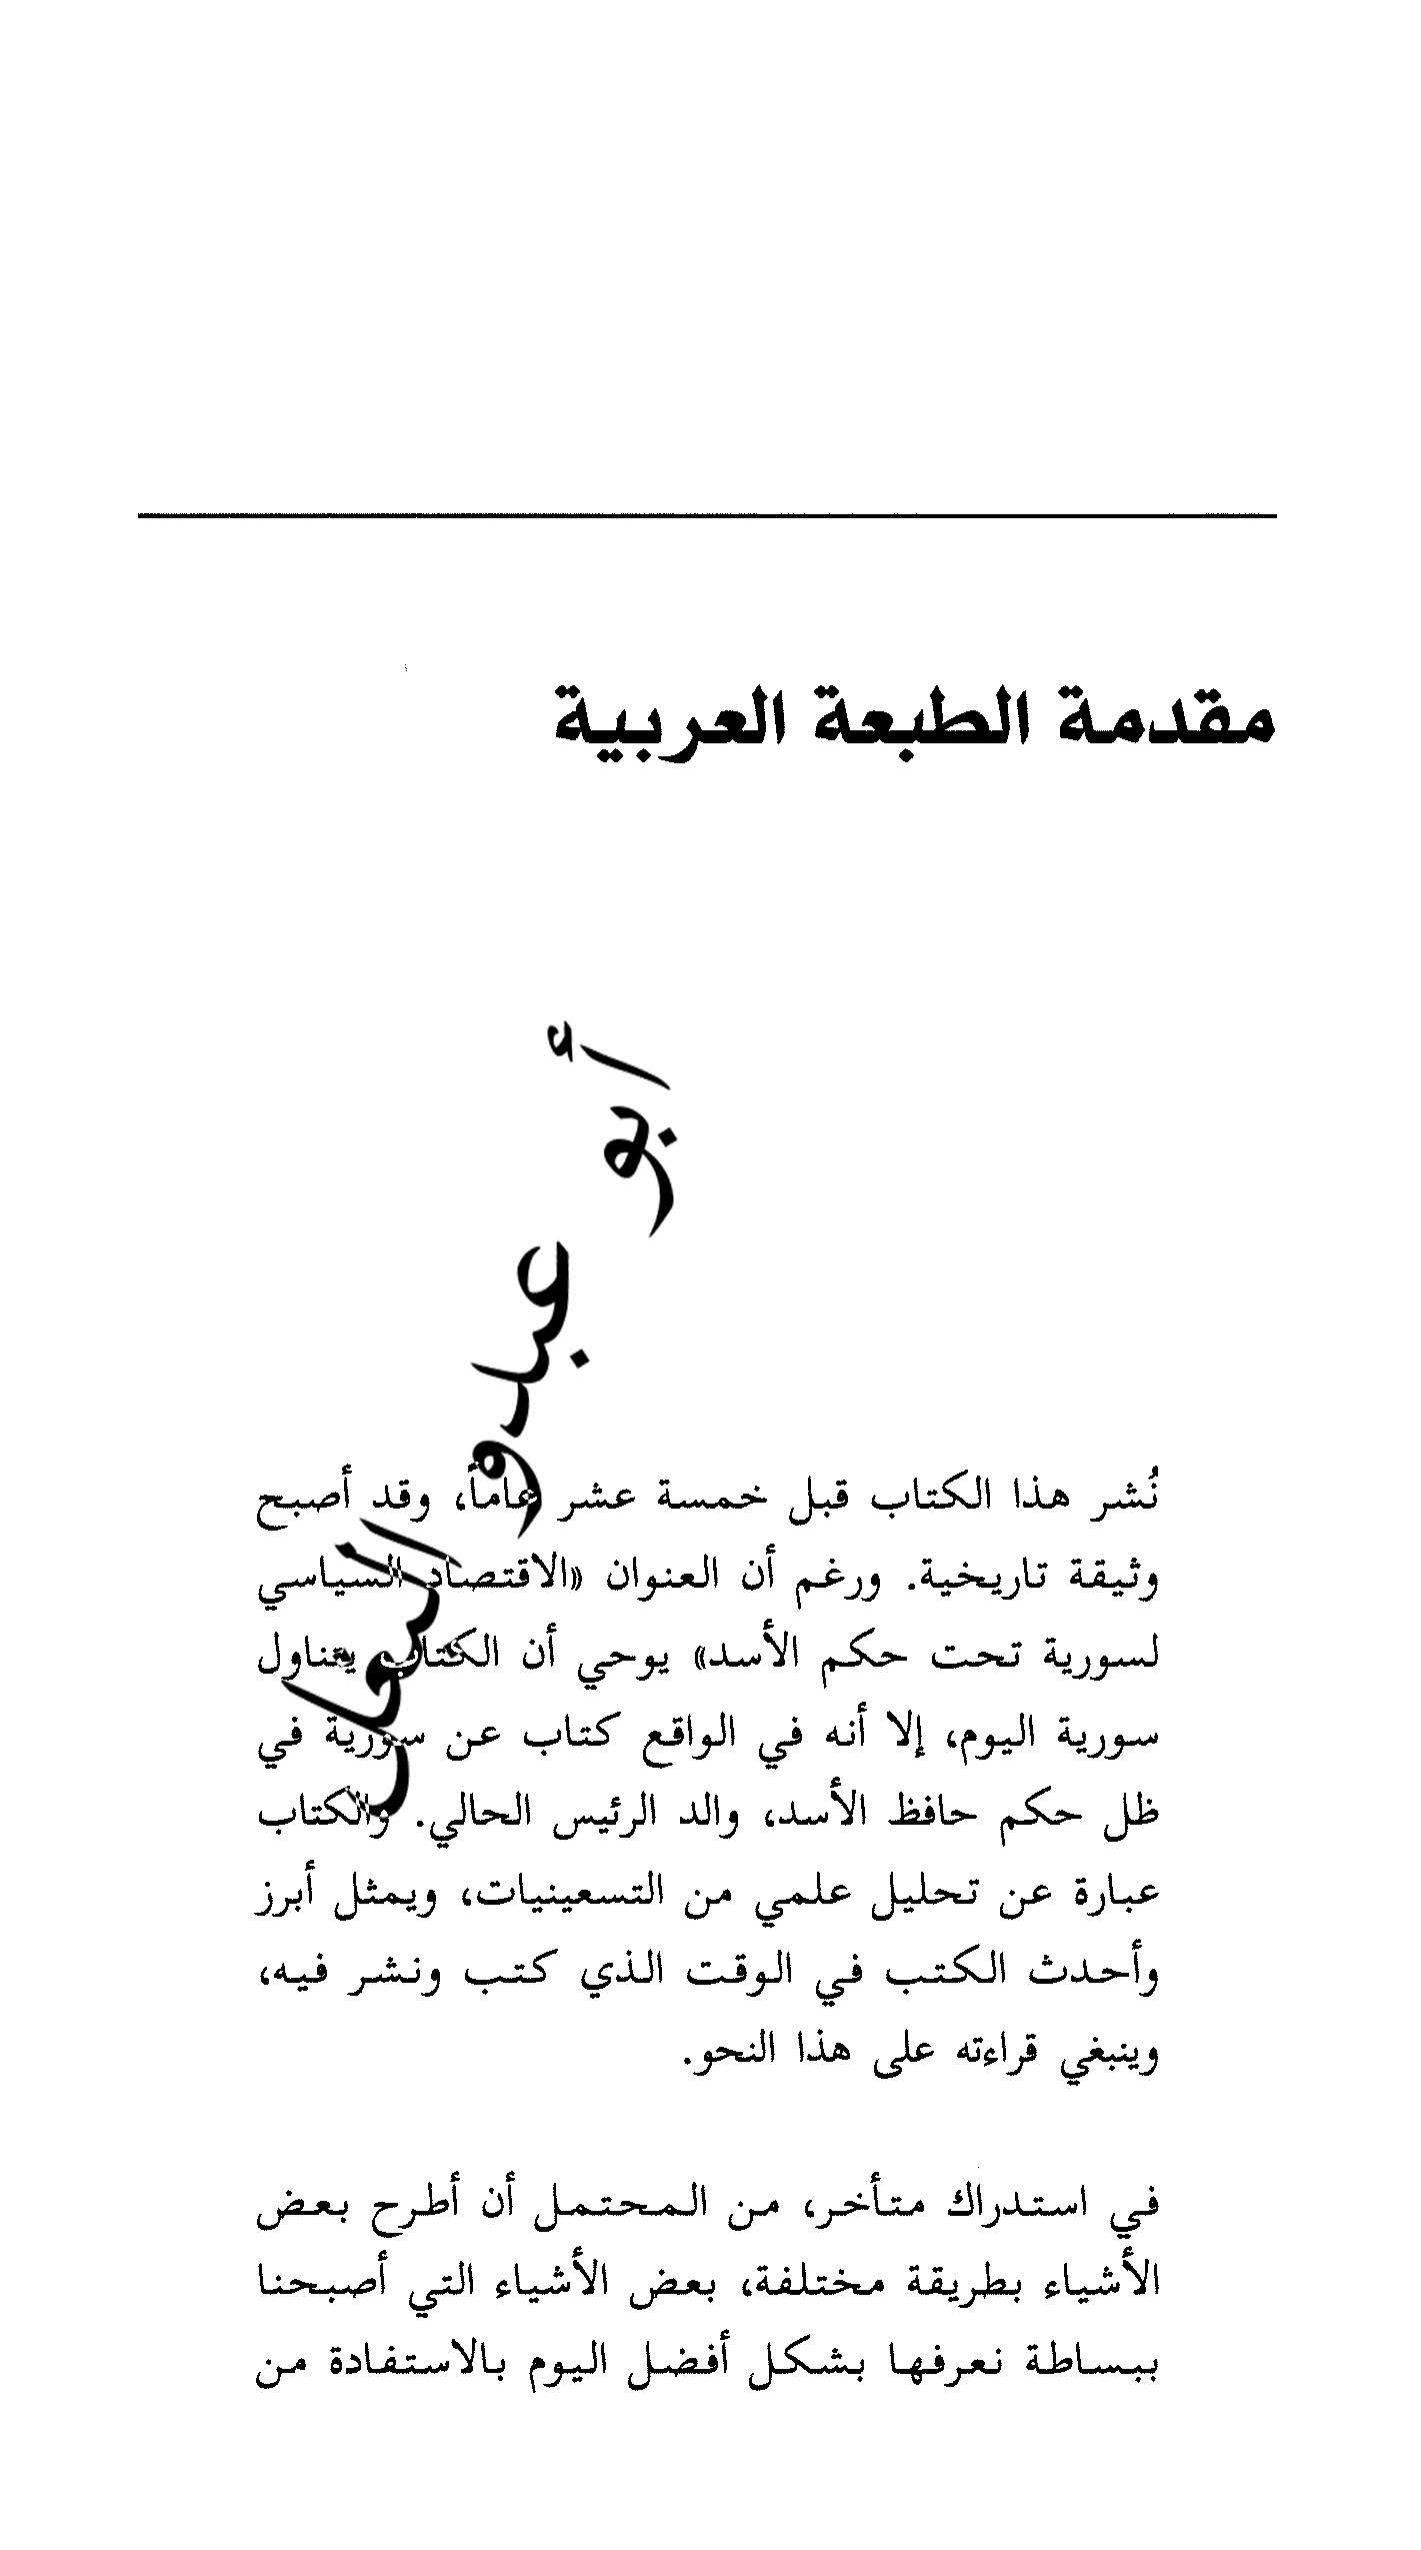 مقدمة الطبعة العربية
أبو عبدو البغل
نُشر هذا الكتاب قبل خمسة عشر عاماً، وقد أصبح
وثيقة تاريخية. ورغم أن العنوان «الاقتصاد السياسي
لسورية تحت حكم الأسد» يوحي أن الكتاب يتناول
سورية اليوم، إلا أنه في الواقع كتاب عن سورية في
ظل حكم حافظ الأسد، والد الرئيس الحالي. والكتاب
عبارة عن تحليل علمي من التسعينيات، ويمثل أبرز
وأحدث الكتب في الوقت الذي كتب ونشر فيه،
وينبغي قراءته على هذا النحو.
في استدراك متأخر، من المحتمل أن أطرح بعض
الأشياء بطريقة مختلفة، بعض الأشياء التي أصبحنا
ببساطة نعرفها بشكل أفضل اليوم بالاستفادة من